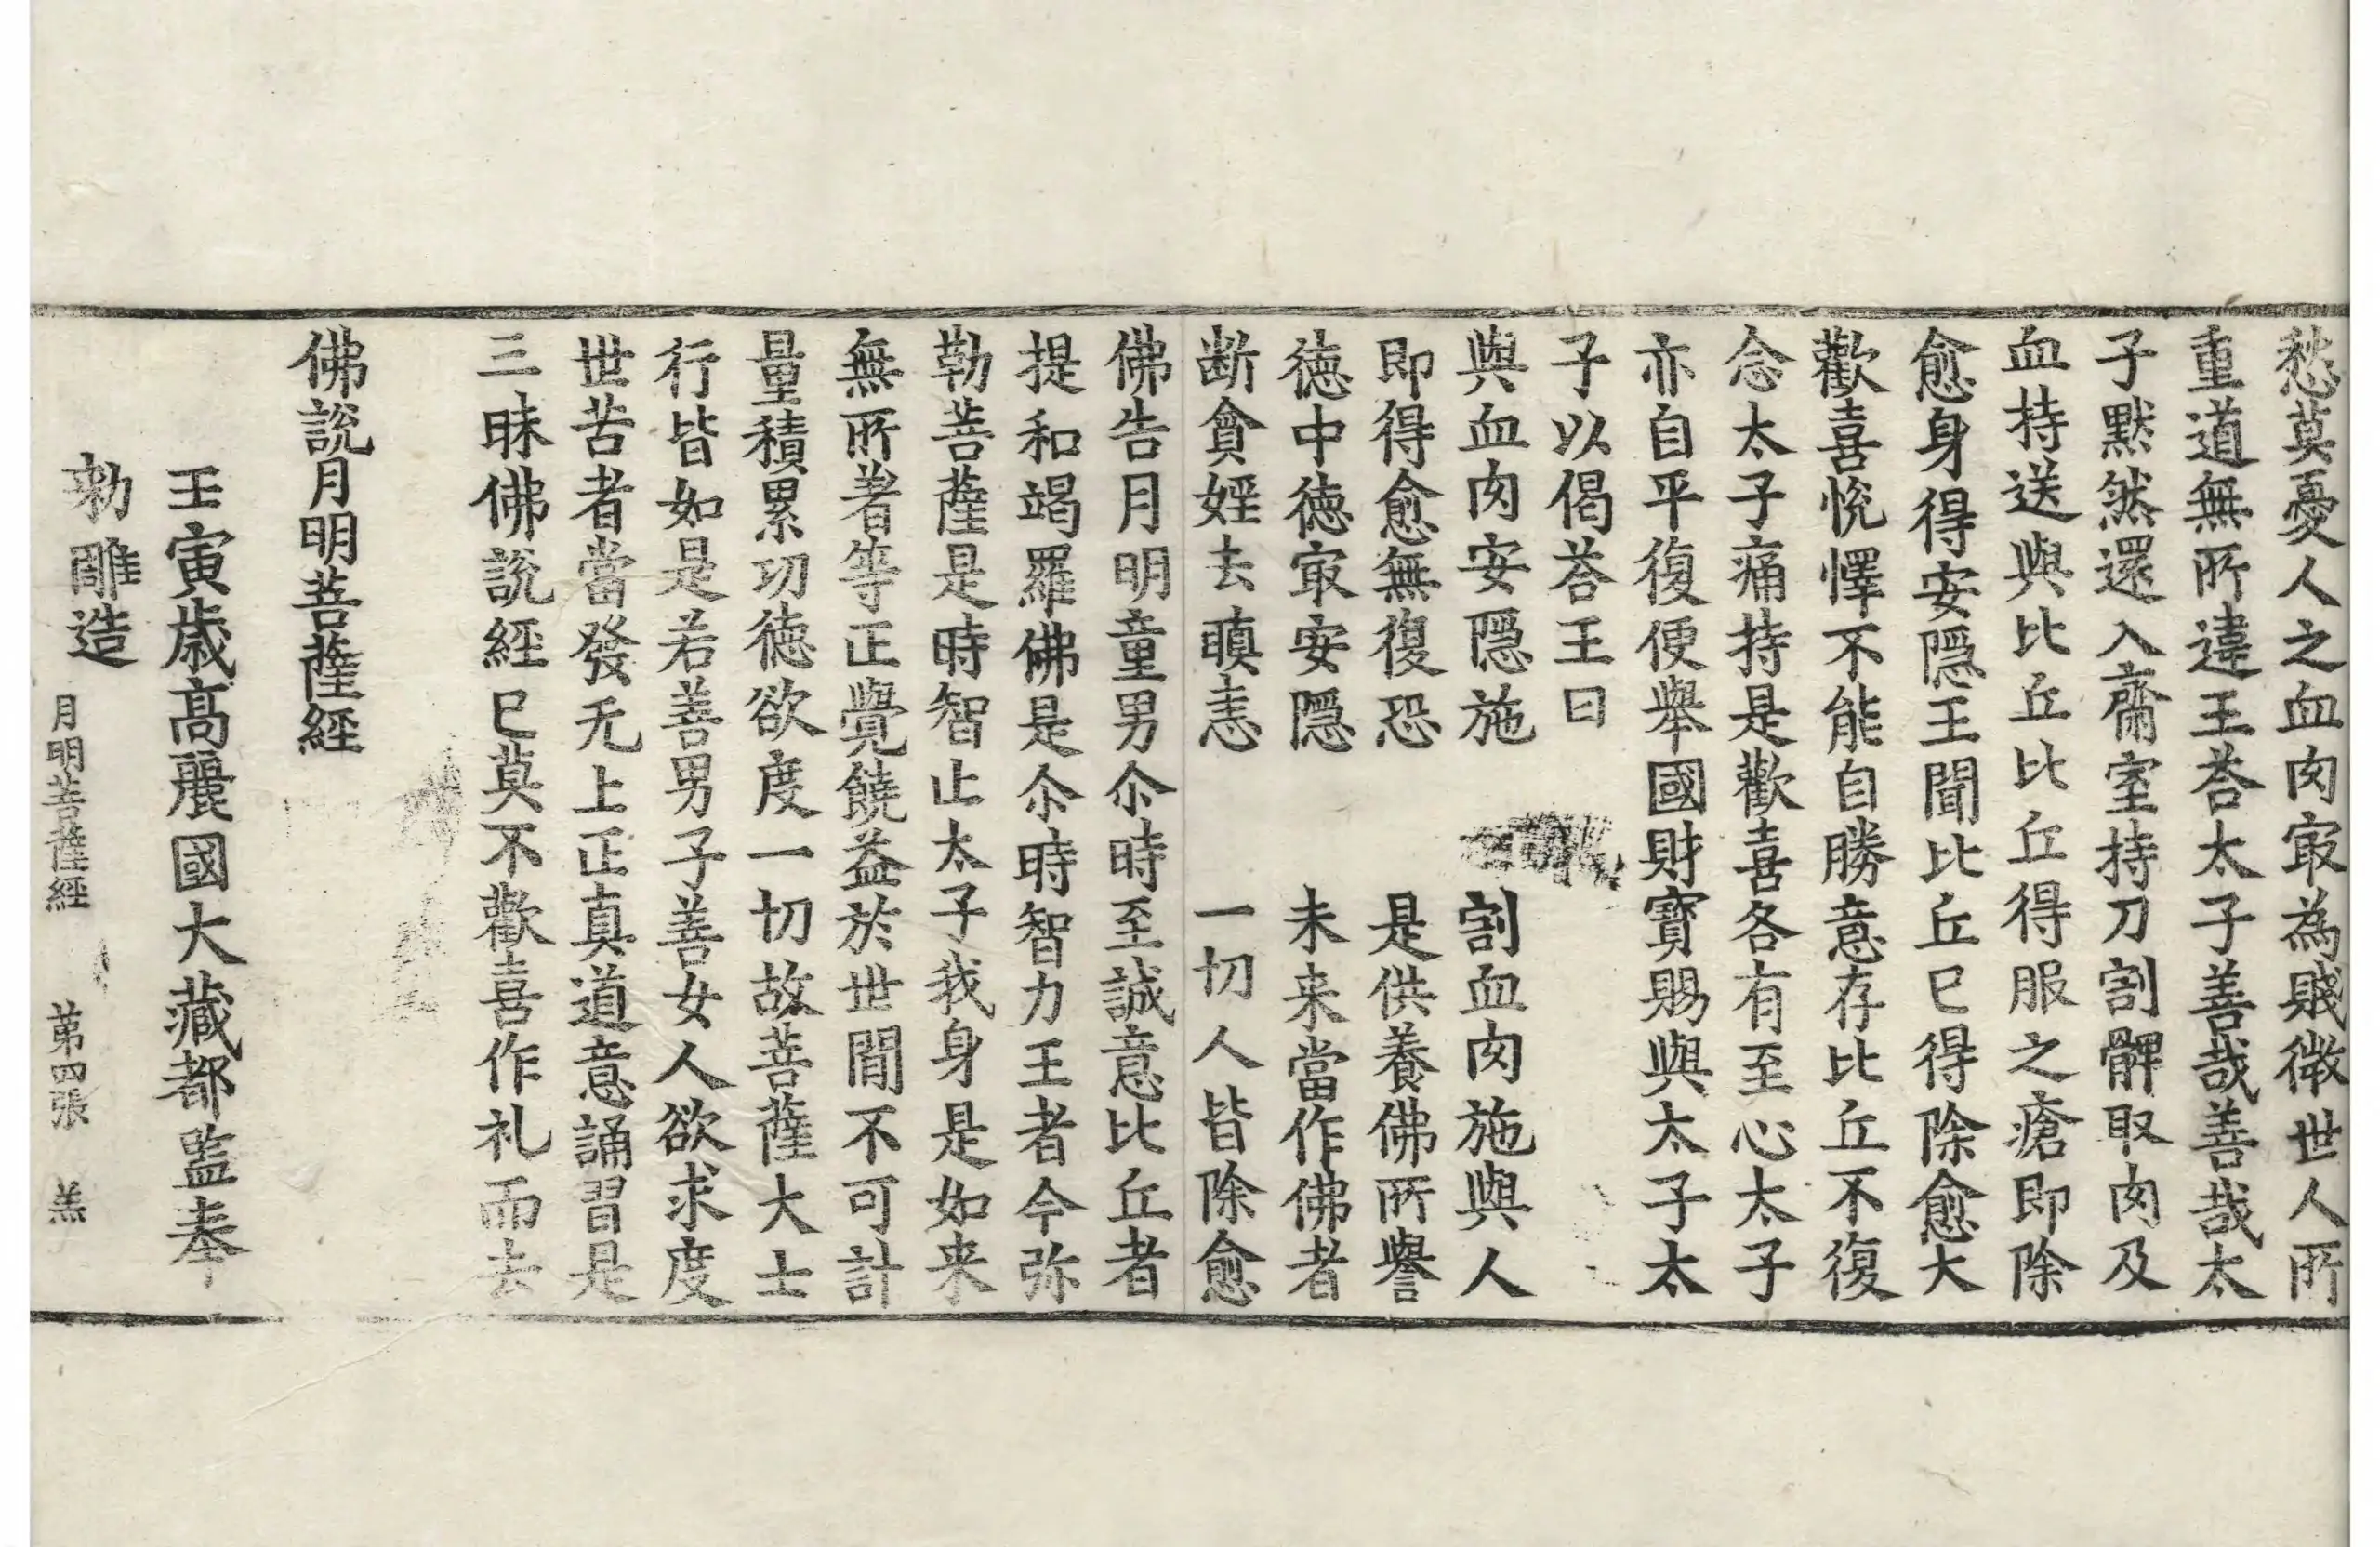 愁莫憂人之血肉㝡為賤徵世人所
重道無所違王荅太子善哉善哉太
子黙然還入齋室持刀割髀取肉及
血持送與比丘比丘得服之瘡即除
愈身得安隠王聞比丘已得除愈大
歡喜恱懌不能自勝意存比丘不復
念太子痛持是歡喜各有至心太子
亦自平復便舉國財寳賜與太子太
子以偈荅王曰
與血肉安隠施　割血肉施與人
即得愈無復恐　是供養佛所譽
徳中徳㝡安隠　未来當作佛者
断貪婬去瞋恚　一切人皆除愈
佛告月明童男尒時至誠意比丘者
提和竭羅佛是尒時智力王者今弥
勒菩薩是時智止太子我身是如来
無所著等正覺饒益於世間不可計
量積累功徳欲度一切故菩薩大士
行皆如是若善男子善女人欲求度
世苦者當發无上正真道意誦習是
三昧佛說經已莫不歡喜作礼而去
佛說月明菩薩經
壬寅歳高麗國大藏都監奉
勑雕造
月明菩薩經　第四張　羔